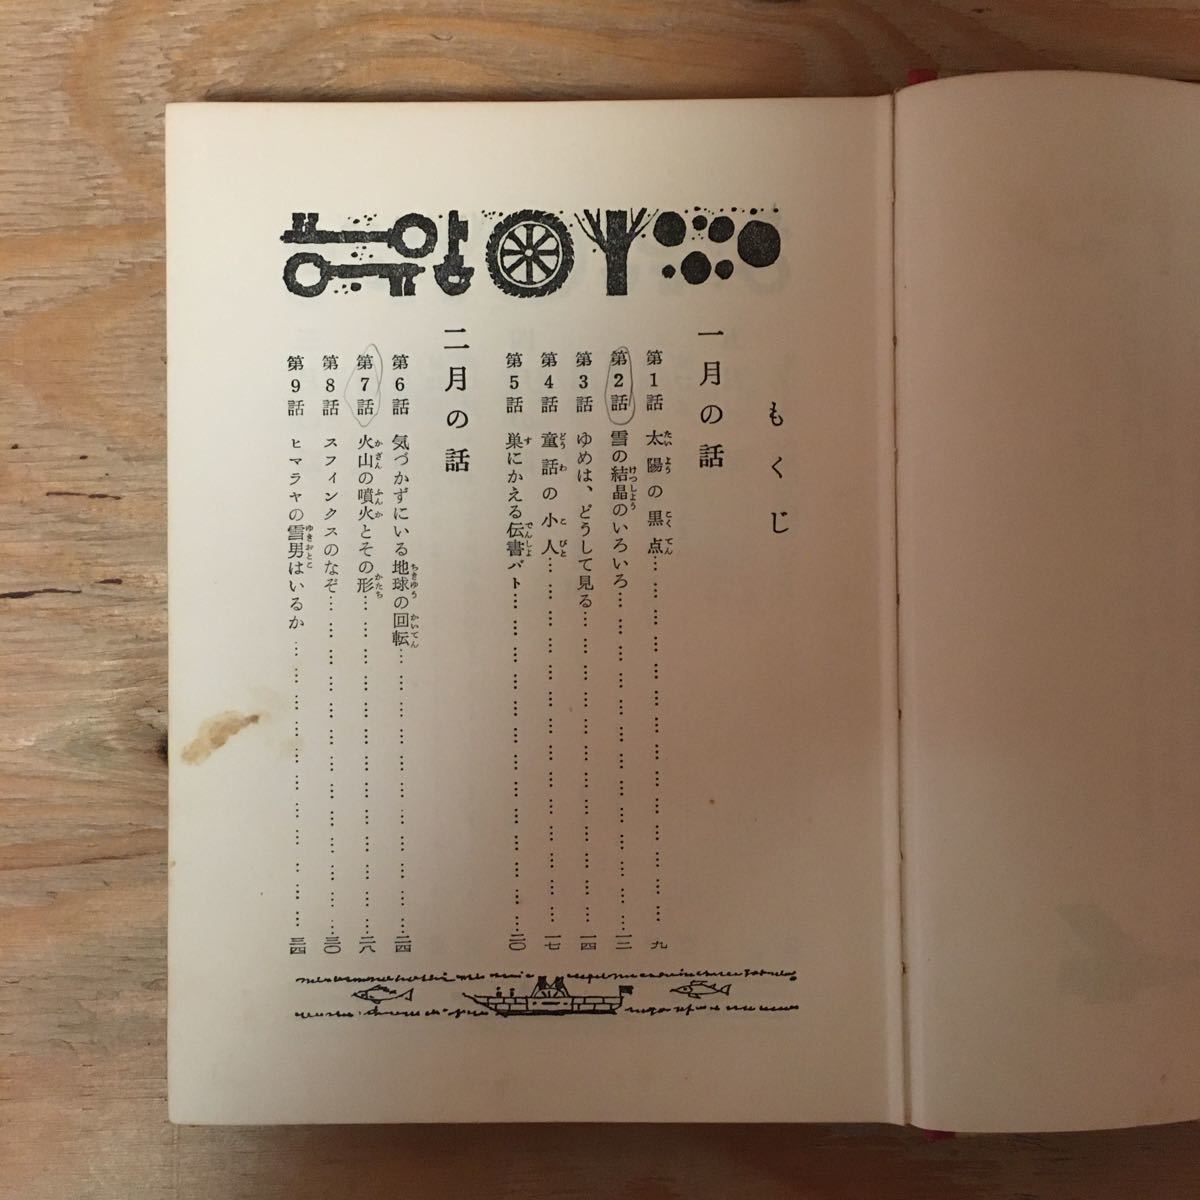 もくじ
一月の話
第1話 太陽の黒点……………………………………九
第2話 雪の結晶のいろいろ……………………………………一二
第3話 ゆめは、どうして見る……………………………………一四
第4話 童話の小人……………………………………一七
第5話 巣にかえる伝書バト……………………………………二〇
二月の話
第6話 気づかずにいる地球の回転……………………………………二四
第7話 火山の噴火とその形……………………………………二八
第8話 スフィンクスのなぞ……………………………………三〇
第9話 ヒマラヤの雪男はいるか……………………………………三四